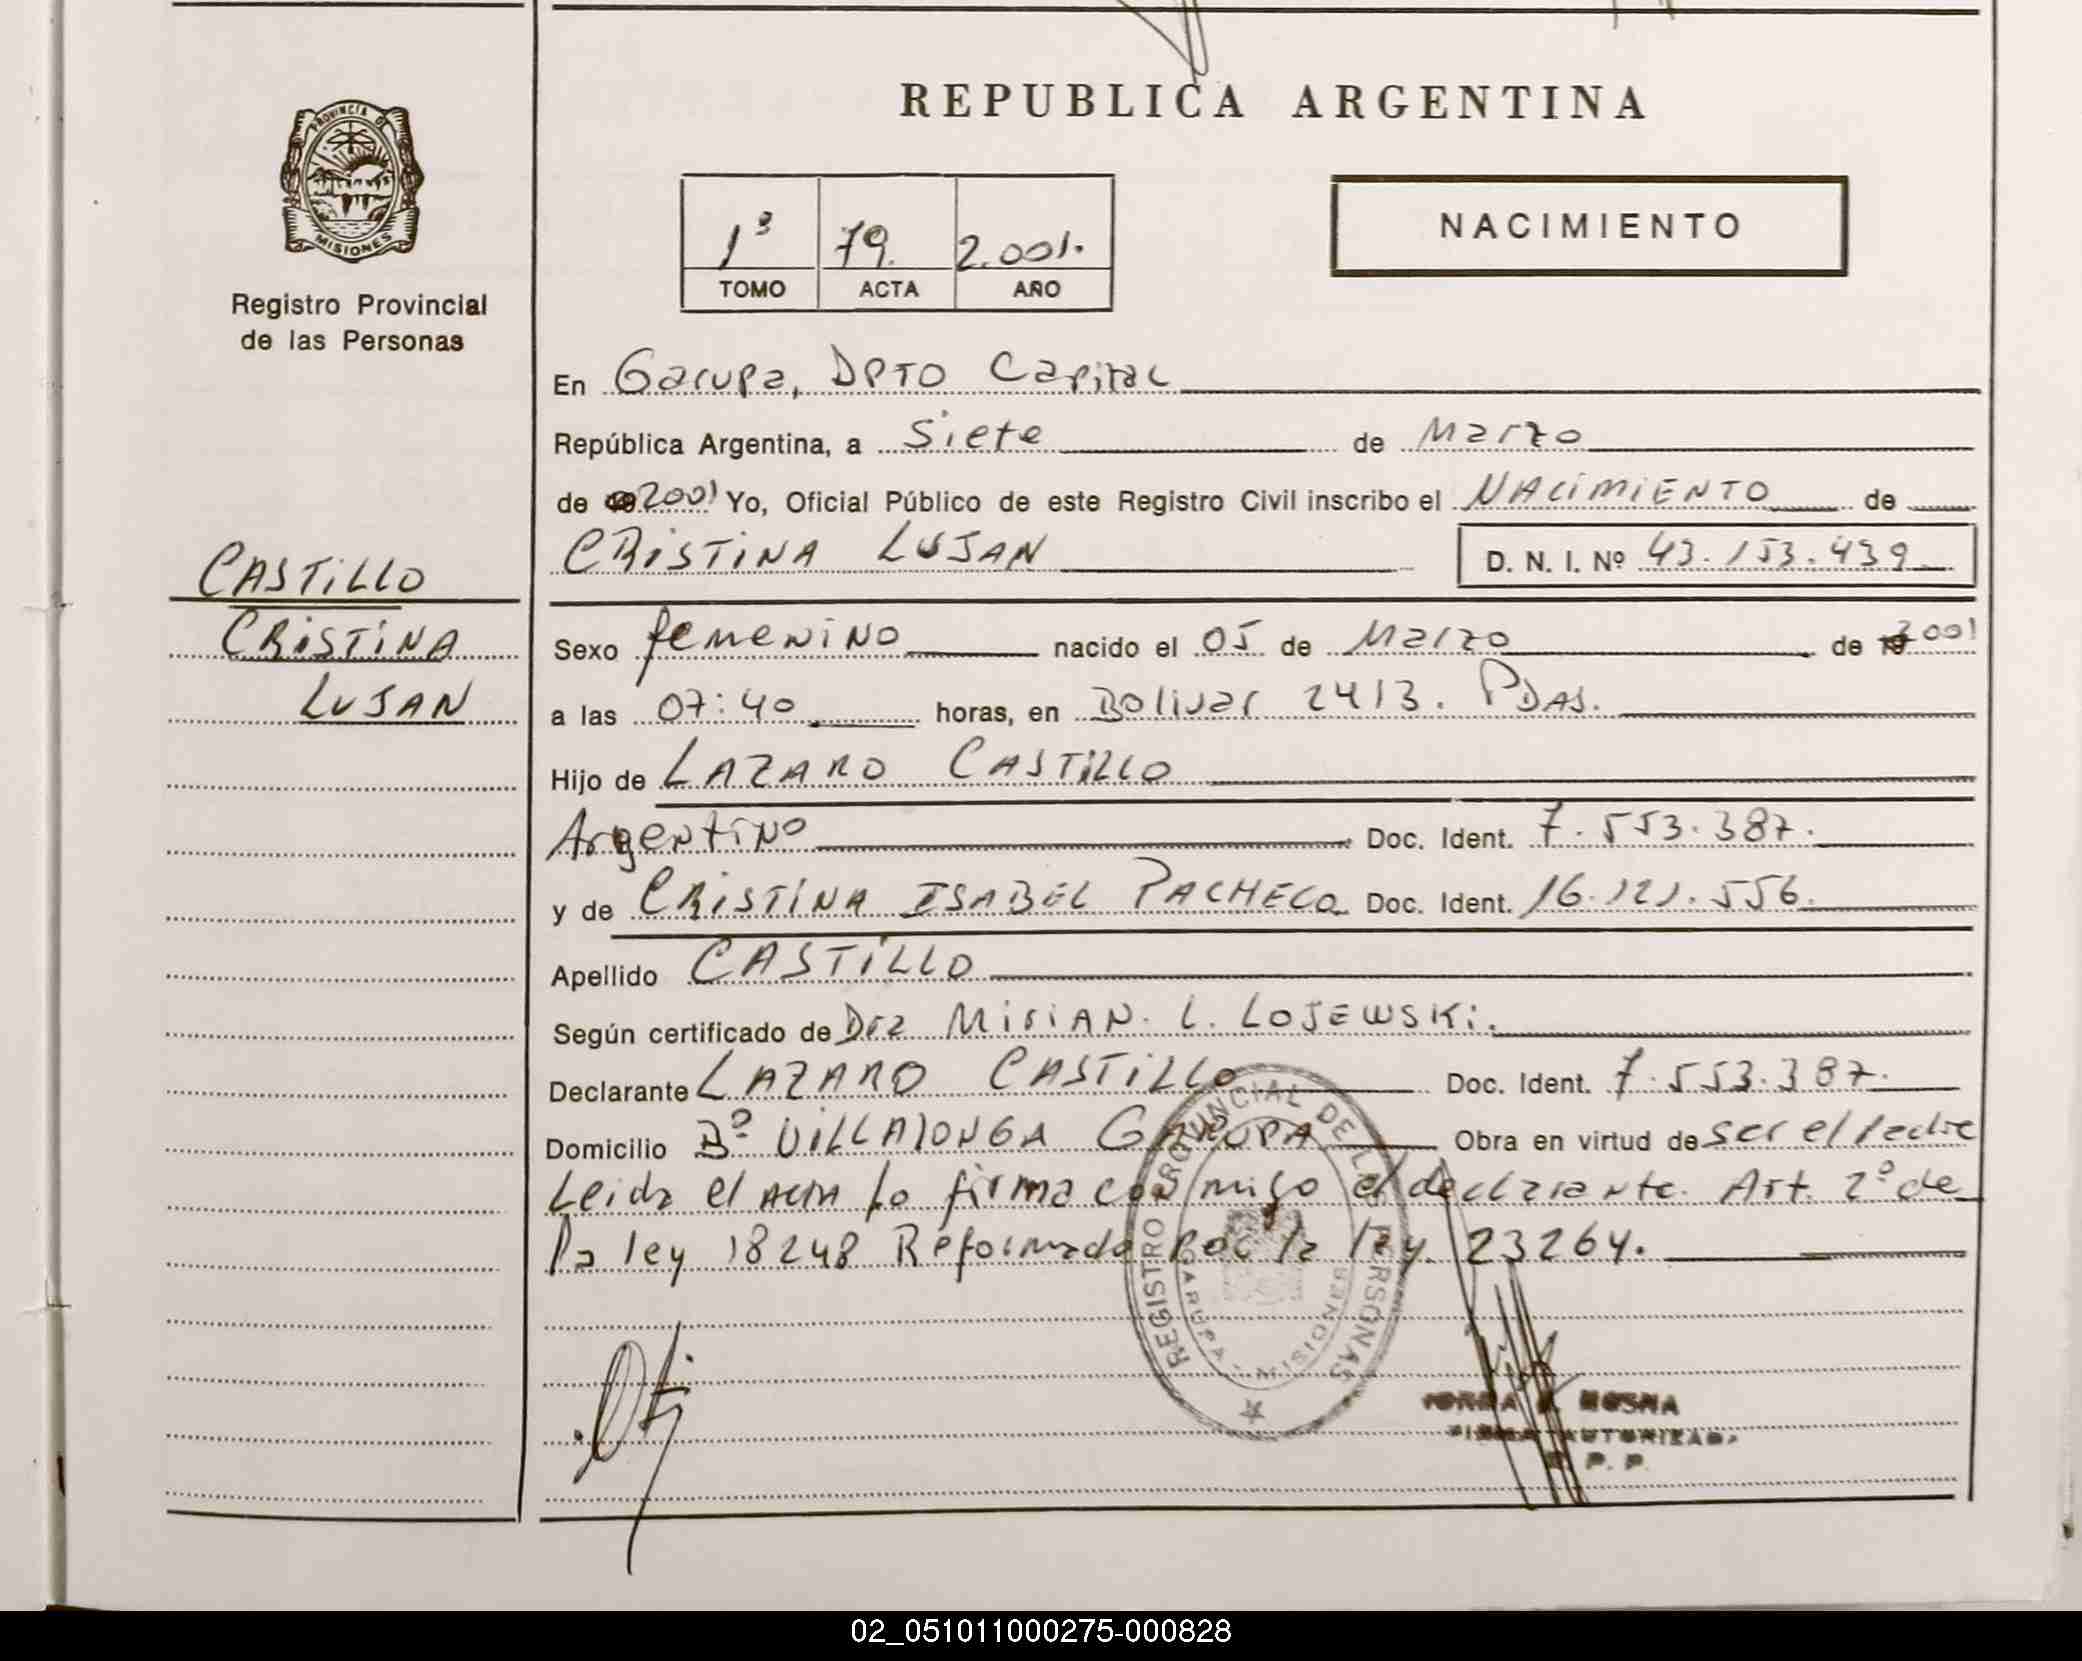 REPUBLICA ARGENTINA
PROVINCIA DE
MISIONES
Registro Provincial
de las Personas
1º 79. 2.001.
TOMO ACTA AÑO
NACIMIENTO
En Garupa, DPTO Capital
República Argentina, a Siete de Marzo
de 2001 Yo, Oficial Público de este Registro Civil inscribo el NACIMIENTO de
CRISTINA LUJAN D. N. I. Nº 43.153.439
CASTILLO
CRISTINA
LUJAN
Sexo femenino nacido el 05 de Marzo de 2001
a las 07:40 horas, en Bolivar 2413. PDAS.
Hijo de LAZARO CASTILLO
Argentino Doc. Ident. 7.553.387.
y de CRISTINA ISABEL PACHECO Doc. Ident. 16.121.556.
Apellido CASTILLO
Según certificado de Dra MIRIAN. L. LOJEWSKI.
Declarante LAZARO CASTILLO Doc. Ident. 7.553.387.
Domicilio Bº VILLALONGA GARUPA Obra en virtud de ser el padre
Leida el ACTA la firma conmigo el declarante. Art. 2º de
la ley 18248 Reformada por la ley 23264.
REGISTRO PROVINCIAL DE LAS PERSONAS
GARUPA - MISIONES
MOSNA
AUTORIZADA
P. P.
02_051011000275-000828